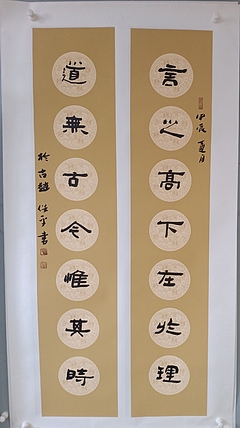 言之高下在於理
甲辰夏月
道無古今惟其時
於古趙任平書